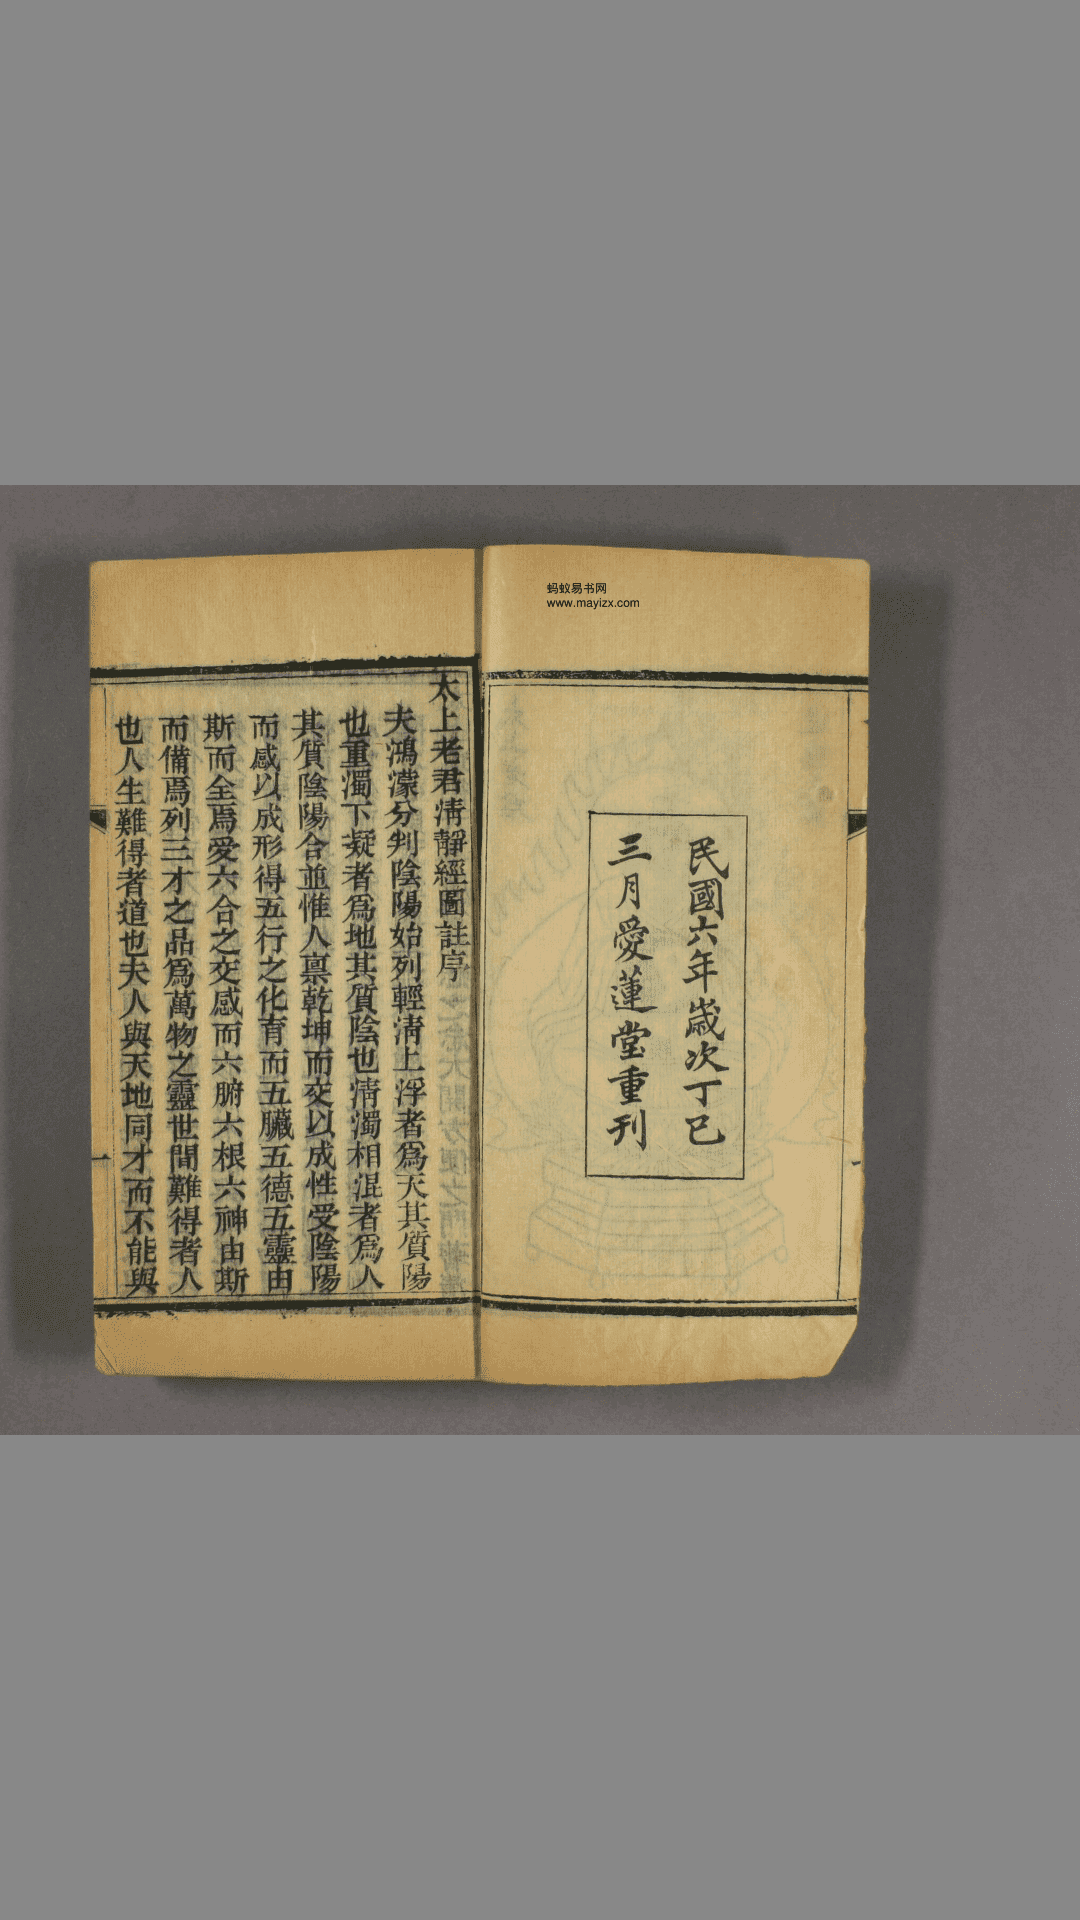 蚂蚁易书网
www.mayizx.com
民國六年歲次丁巳
三月愛蓮堂重刊
太上老君淸靜經圖註序
夫鴻濛分判陰陽始列輕淸上浮者爲天其質陽
也重濁下凝者爲地其質陰也淸濁相混者爲人
其質陰陽合並惟人禀乾坤而交以成性受陰陽
而感以成形得五行之化育而五臟五德五靈由
斯而全焉愛六合之交感而六腑六根六神由斯
而備焉列三才之品爲萬物之靈世間難得者人
也人生難得者道也夫人與天地同才而不能與
一
一